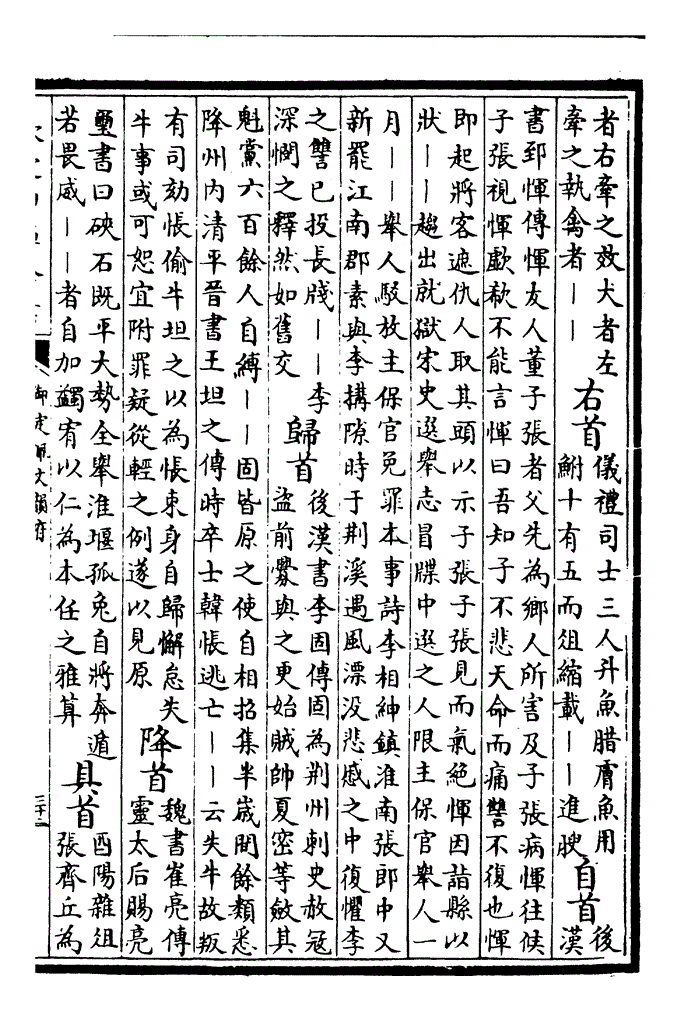 者右牽之效犬者左
牽之執禽者丨丨
右首
儀禮司士三人升魚腊膚魚用
鮒十有五而俎縮載丨丨進腴
自首
後
漢
書郅惲傳惲友人董子張者父先為鄉人所害及子張病惲往候
子張視惲歔欷不能言惲曰吾知子不悲天命而痛讐不復也惲
即起將客遮仇人取其頭以示子張子張見而氣絶惲因詣縣以
狀丨丨趨出就獄宋史選舉志冒牒中選之人限主保官舉人一
月丨丨舉人駁放主保官免罪本事詩李相紳鎮淮南張郎中又
新罷江南郡素與李搆隙時于荆溪遇風漂没悲感之中復懼李
之讐已投長牋丨丨李
深憫之釋然如舊交
歸首
後漢書李固傳固為荆州刺史赦冦
盜前釁與之更始賊帥夏密等斂其
魁黨六百餘人自縛丨丨固皆原之使自相招集半歲間餘類悉
降州内清平晉書王坦之傳時卒士韓悵逃亡丨丨云失牛故叛
有司劾悵偷牛坦之以為悵束身自歸懈怠失
牛事或可恕宜附罪疑從輕之例遂以見原
降首
魏書崔亮傳
靈太后賜亮
璽書曰硤石既平大勢全舉淮堰孤兎自將奔遁
若畏威丨丨者自加蠲宥以仁為本任之雅算
具首
酉陽雜俎
張齊丘為
御定佩文韻府